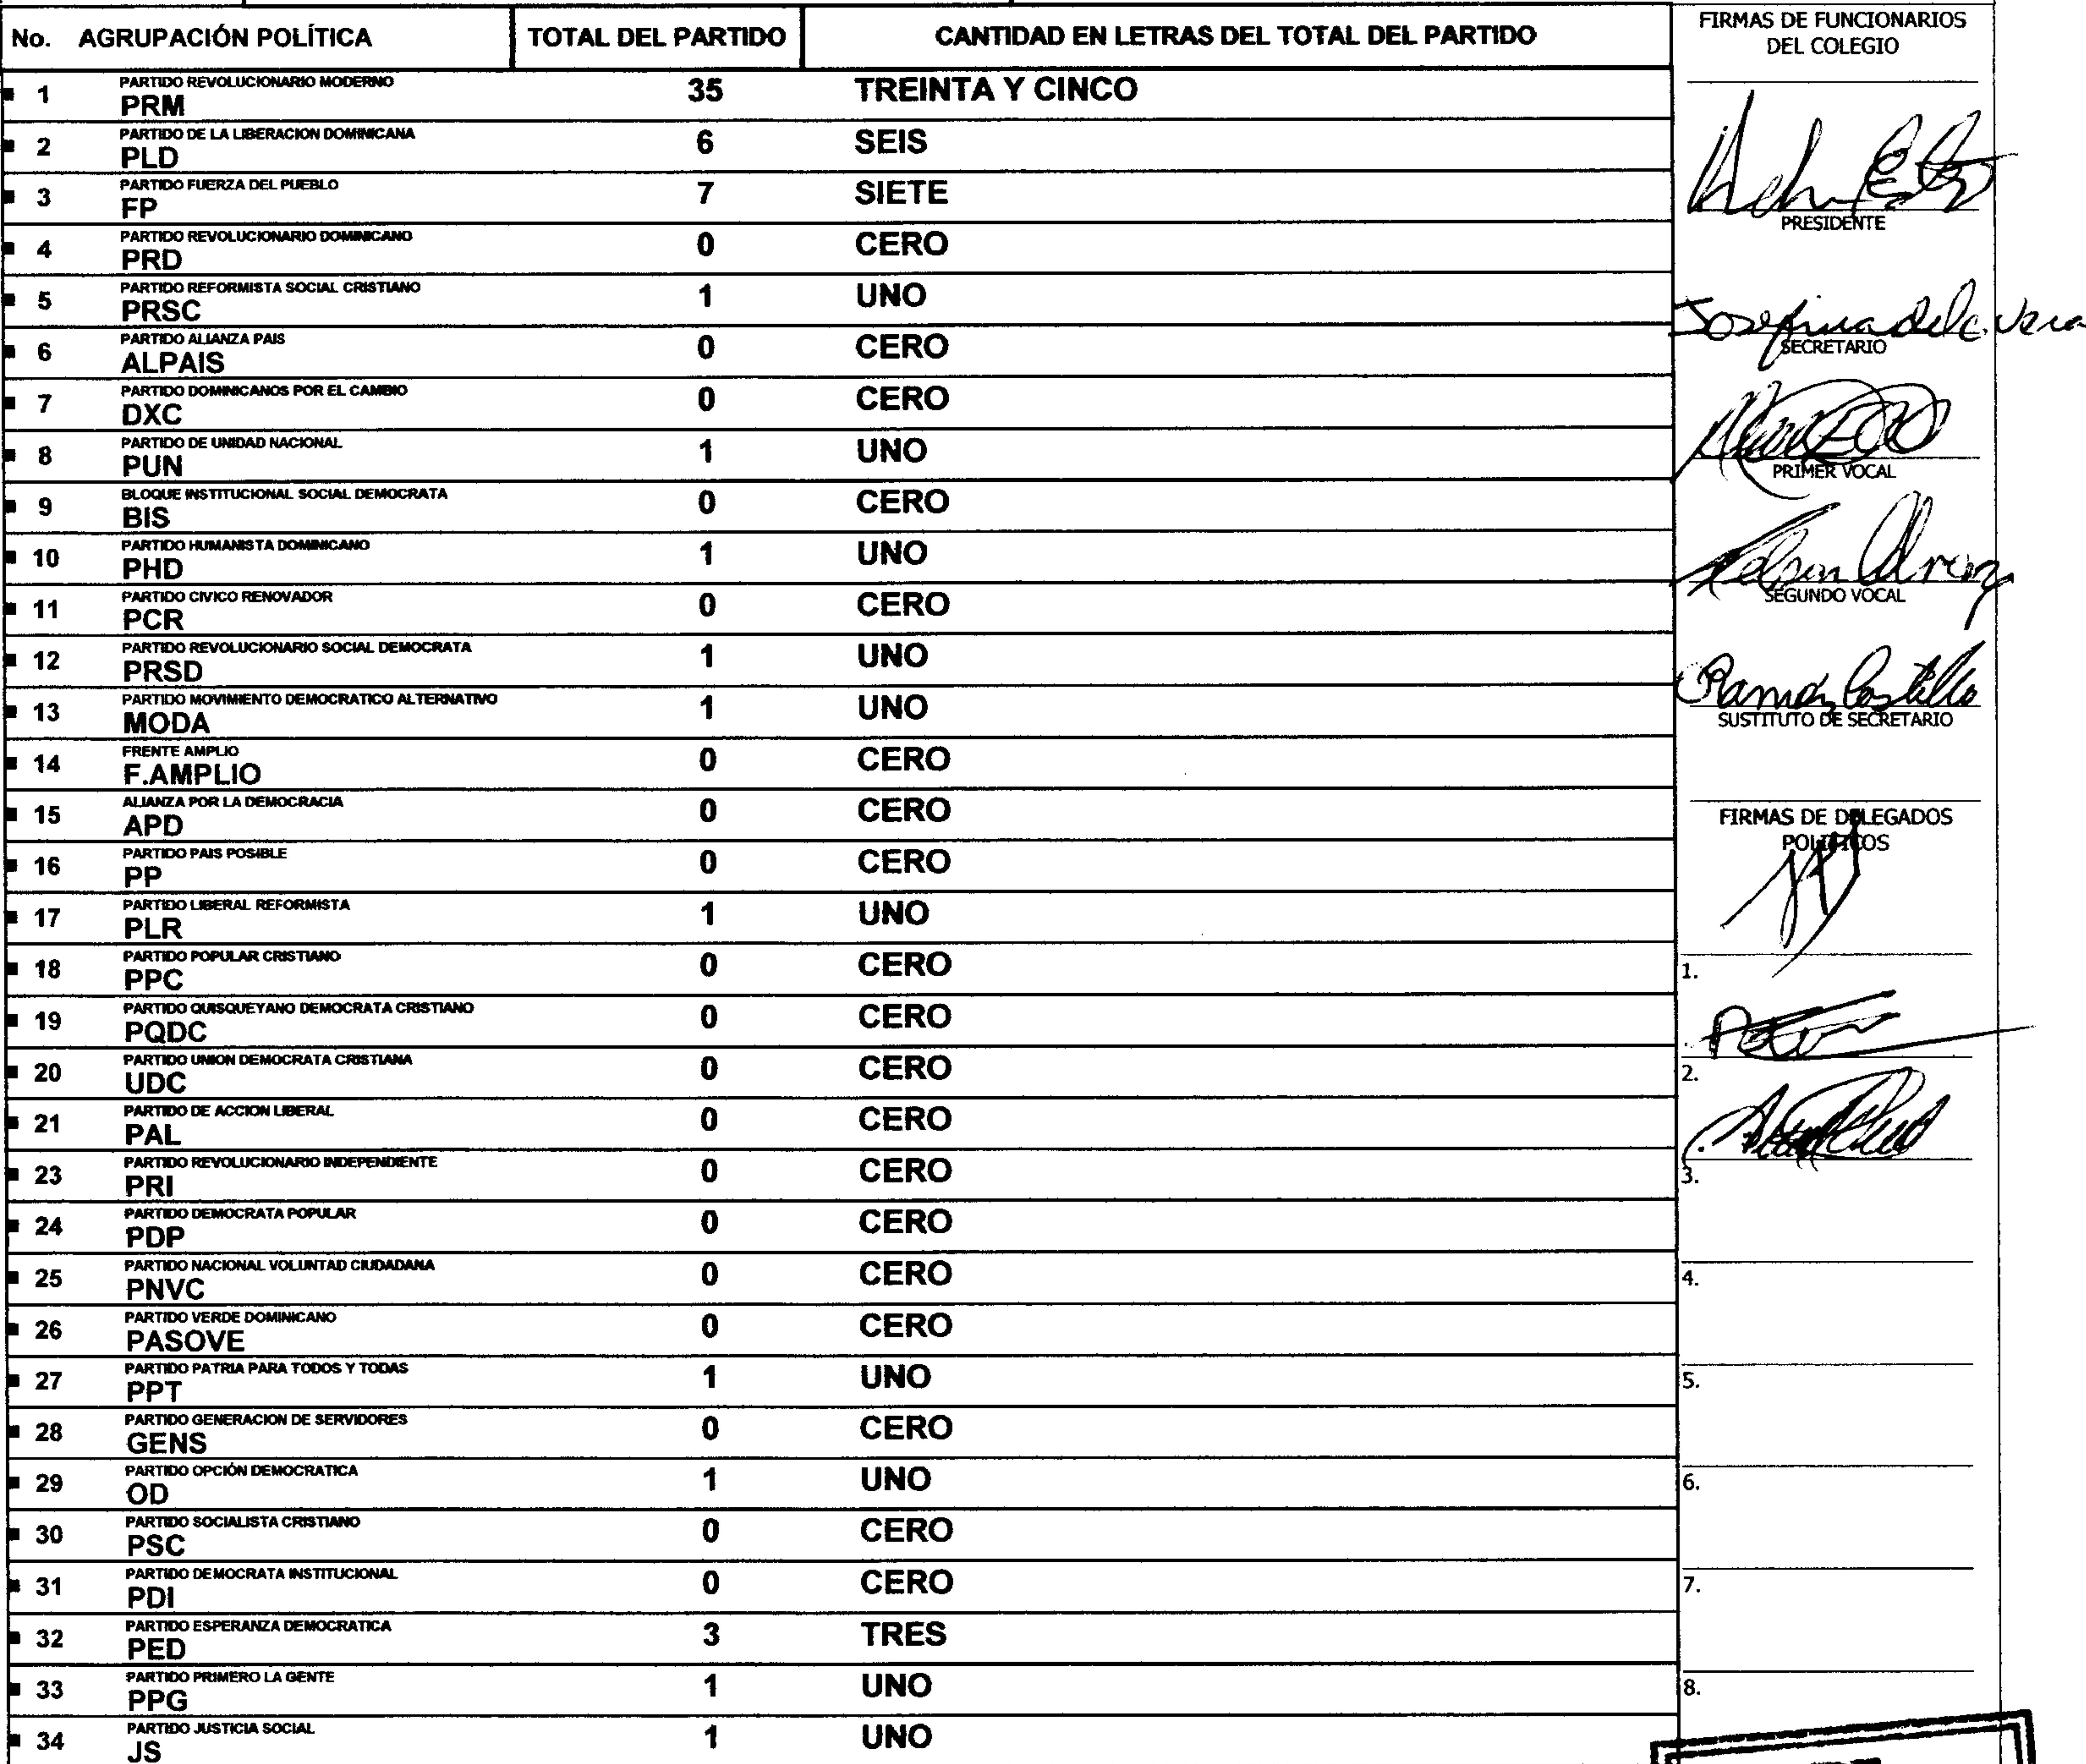 No. AGRUPACIÓN POLÍTICA TOTAL DEL PARTIDO CANTIDAD EN LETRAS DEL TOTAL DEL PARTIDO
PARTIDO REVOLUCIONARIO MODERNO
1 PRM 35 TREINTA Y CINCO
PARTIDO DE LA LIBERACION DOMINICANA
2 PLD 6 SEIS
PARTIDO FUERZA DEL PUEBLO
3 FP 7 SIETE
PARTIDO REVOLUCIONARIO DOMINICANO
4 PRD 0 CERO
PARTIDO REFORMISTA SOCIAL CRISTIANO
5 PRSC 1 UNO
PARTIDO ALIANZA PAIS
6 ALPAIS 0 CERO
PARTIDO DOMINICANOS POR EL CAMBIO
7 DXC 0 CERO
PARTIDO DE UNIDAD NACIONAL
8 PUN 1 UNO
BLOQUE INSTITUCIONAL SOCIAL DEMOCRATA
9 BIS 0 CERO
PARTIDO HUMANISTA DOMINICANO
10 PHD 1 UNO
PARTIDO CIVICO RENOVADOR
11 PCR 0 CERO
PARTIDO REVOLUCIONARIO SOCIAL DEMOCRATA
12 PRSD 1 UNO
PARTIDO MOVIMIENTO DEMOCRATICO ALTERNATIVO
13 MODA 1 UNO
FRENTE AMPLIO
14 F.AMPLIO 0 CERO
ALIANZA POR LA DEMOCRACIA
15 APD 0 CERO
PARTIDO PAIS POSIBLE
16 PP 0 CERO
PARTIDO LIBERAL REFORMISTA
17 PLR 1 UNO
PARTIDO POPULAR CRISTIANO
18 PPC 0 CERO
PARTIDO QUISQUEYANO DEMOCRATA CRISTIANO
19 PQDC 0 CERO
PARTIDO UNION DEMOCRATA CRISTIANA
20 UDC 0 CERO
PARTIDO DE ACCION LIBERAL
21 PAL 0 CERO
PARTIDO REVOLUCIONARIO INDEPENDIENTE
23 PRI 0 CERO
PARTIDO DEMOCRATA POPULAR
24 PDP 0 CERO
PARTIDO NACIONAL VOLUNTAD CIUDADANA
25 PNVC 0 CERO
PARTIDO VERDE DOMINICANO
26 PASOVE 0 CERO
PARTIDO PATRIA PARA TODOS Y TODAS
27 PPT 1 UNO
PARTIDO GENERACION DE SERVIDORES
28 GENS 0 CERO
PARTIDO OPCIÓN DEMOCRATICA
29 OD 1 UNO
PARTIDO SOCIALISTA CRISTIANO
30 PSC 0 CERO
PARTIDO DEMOCRATA INSTITUCIONAL
31 PDI 0 CERO
PARTIDO ESPERANZA DEMOCRATICA
32 PED 3 TRES
PARTIDO PRIMERO LA GENTE
33 PPG 1 UNO
PARTIDO JUSTICIA SOCIAL
34 JS 1 UNO
FIRMAS DE FUNCIONARIOS
DEL COLEGIO
PRESIDENTE
Josefina
SECRETARIO
PRIMER VOCAL
SEGUNDO VOCAL
Ramón Castillo
SUSTITUTO DE SECRETARIO
FIRMAS DE DELEGADOS
POLITICOS
1.
2.
3.
4.
5.
6.
7.
8.